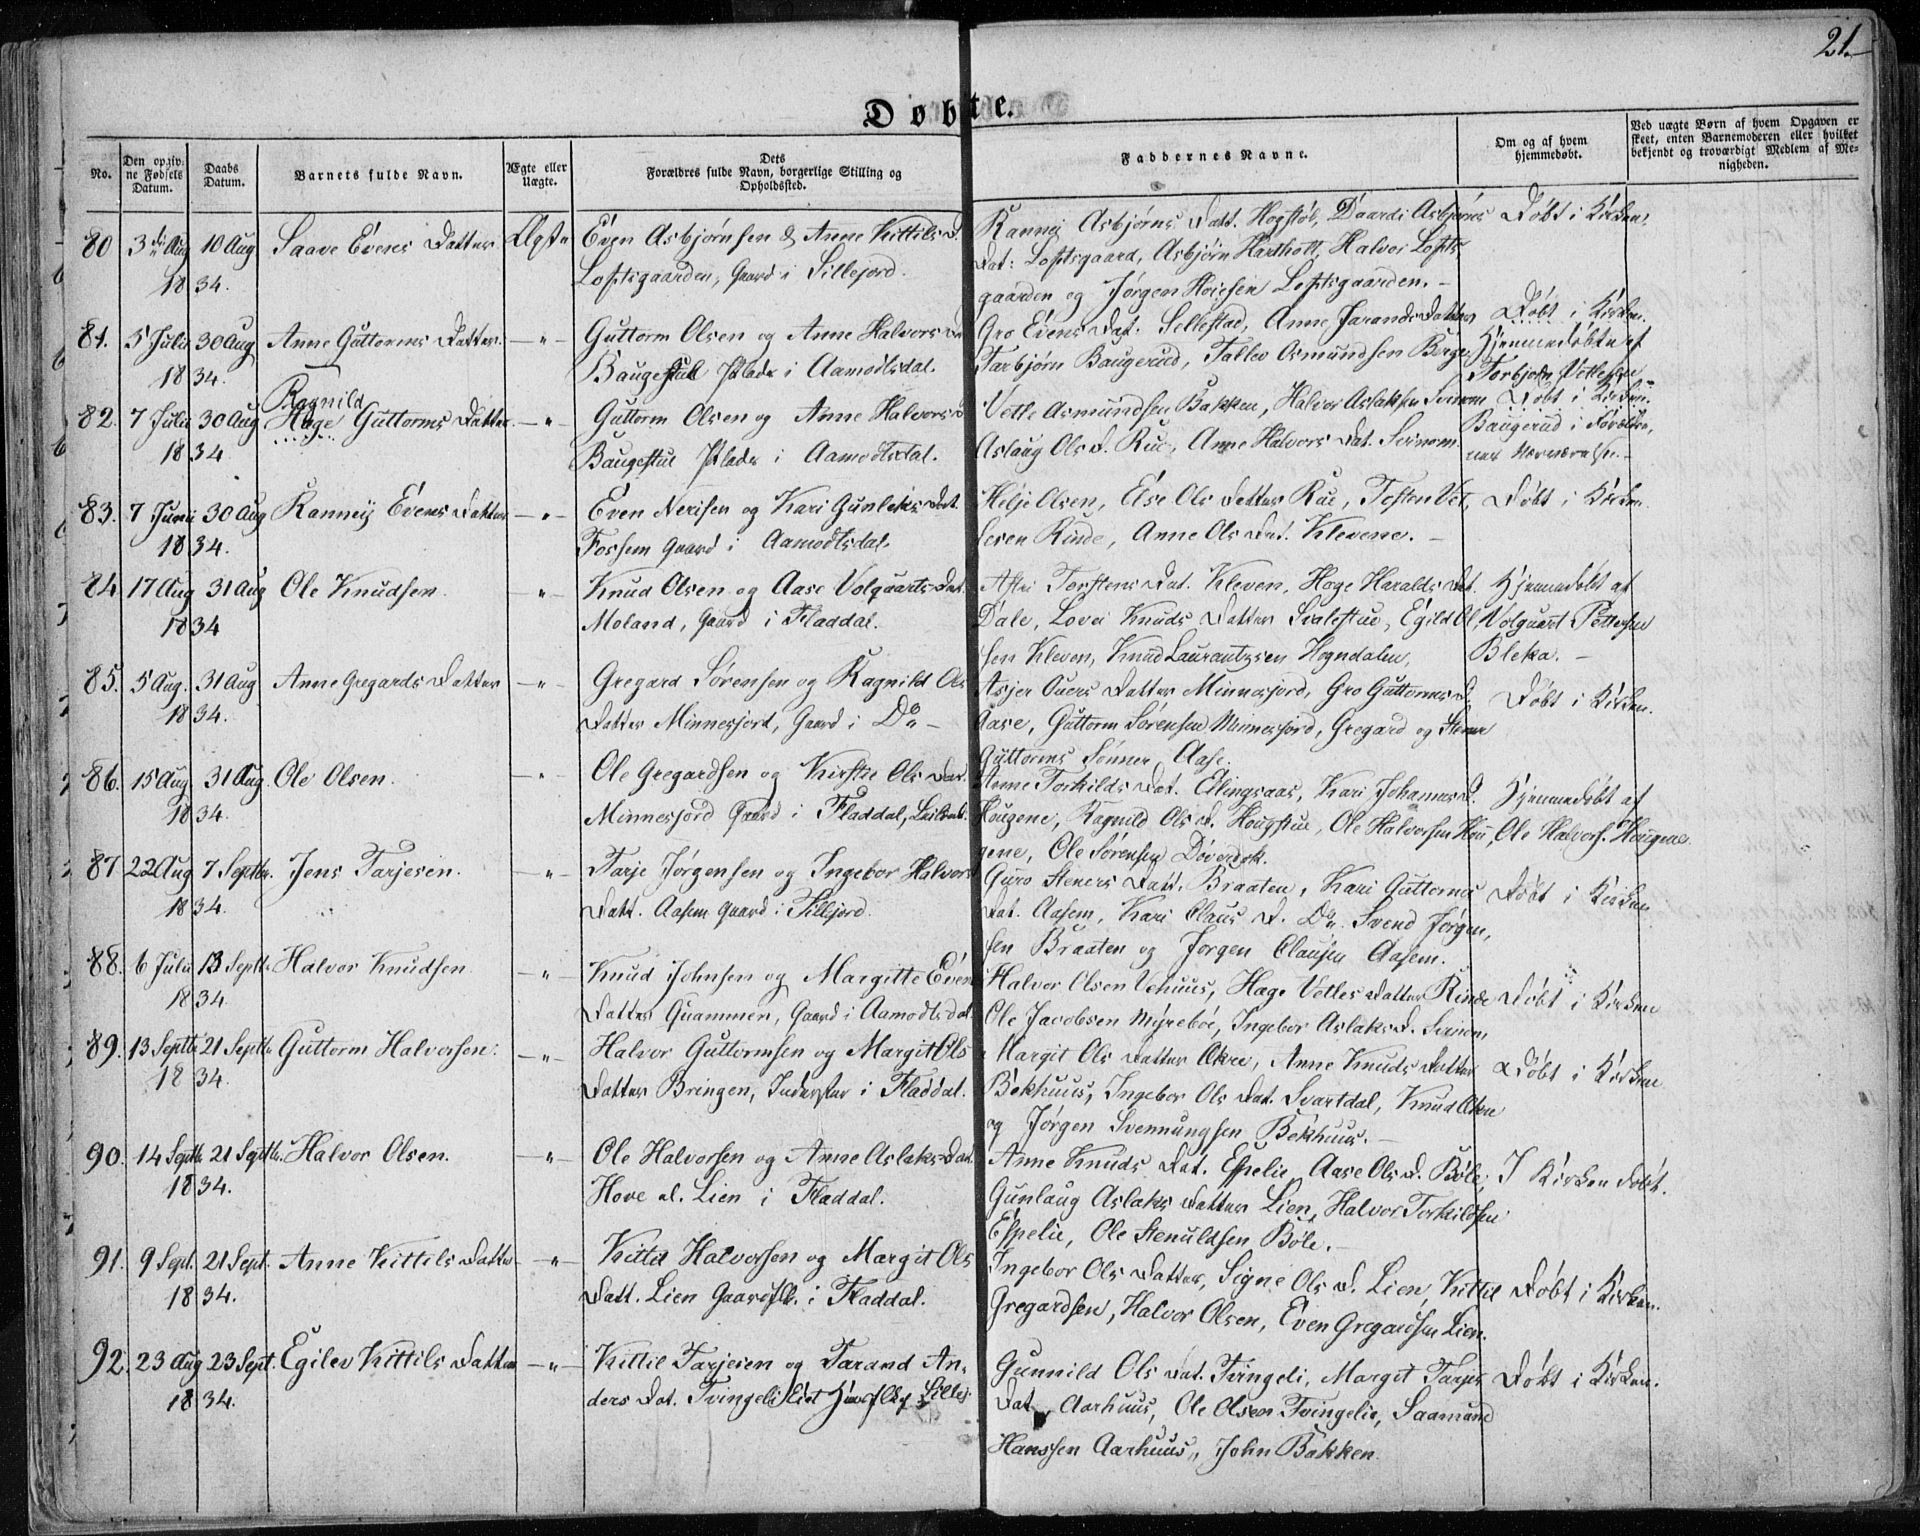 21.
Døbte.
No.
Den opgiv-
ne Fødsels
Datum.
Daabs
Datum.
Barnets fulde Navn.
Ægte eller
Uægte.
Dets
Forældres fulde Navn, borgerlige Stilling og
Opholdssted.
Faddernes Navne.
Om og af hvem
hjemmedøbt.
Ved uægte Børn af hvem Opgaven er
skeet, enten Barnemoderen eller hvilket
bekjendt og troværdigt Medlem af Me-
nigheden.
80 3die Aug 10 Aug Saave Evens Datter Ægte Even Asbjørnsen & Anne Kittils D.
1834. Loftsgaarden, Gaard i Sillejord.
Rannei Asbjørns Datt. Hogstøl, Daardi Asbjørns
Dat: Loftsgaard, Asbjørn Hartholt, Halvor Lofts
gaarden og Jørgen Loftsgaarden. -
Døbt i Kirken.
81. 5 Julii 30 Aug Anne Guttorms Datter. -"- Guttorm Olsen og Anne Halvors Dat
1834. Baugestul Plads i Aamodtsdal.
Gro Evens Dat. Sellestad, Anne Jarands Datter
Tarbjørn Baugerud, Tallev Osmundsen Berge
Døbt i Kirken.
Hjemmedøbte af
Torbjørn Vetlesen
82. 7 Julii 30 Aug Ragnild
Høge Guttorms Datter. -"- Guttorm Olsen og Anne Halvors D
1834 Baugestul Plads i Aamodtsdal.
Vetle Asmundsen Bakken, Halvor Aslaksen Svinom
Aslaug Ols D. Rue, Anne Halvors Dat. Svinom.
Døbt i Kirken.
Baugerud i Forældre,
nes Nærværelse. -
83. 7 Junii 30 Aug Ranneij Evens Datter -"- Even Nerisen og Kari Gunleks Dat.
1834. Fossem Gaard i Aamodtsdal.
Helje Olsen, Else Ols Datter Rue, Testen Vet,
lesen Rinde, Anne Ols Dat. Klevene. -
Døbt i Kirken
84 17 Aug 31 Aug Ole Knudsen. " Knud Olsen og Aase Volquarts Dat.
1834 Moland, Gaard i Fladdal.
Torstens Dat. Kleven, Høge Haralds Dat.
Dale, Lovei Knuds Datter Svalestue, Egild Ol,
sen Kleven, Knud Laurantzsen Hogndalen,
Hjemmedøbt af
Volquart Pettersen
Bleka. -
85. 5 Aug. 31 Aug Anne Gregards Datter -"- Gregard Sørensen og Ragnild Ols
1834. Datter Minnesjord, Gaard i Do -
Asjer Ouers Datter Minnesjord, Gro Guttorms D.
Aase, Guttorm Sørensen Minnesjord, Gregard og Stener
Guttorms Sønner Aase.
Døbt i Kirken.
86. 15 Aug 31 Aug. Ole Olsen. -"- Ole Gregardsen og Kirstie Ols Dat.
1834. Minnesjord Gaard i Fladdal,
Anne Torkilds Dat. Ellingsaas, Kari Johannes D.
Hougene, Ragnild Ols D. Hougstue, Ole Halvorsen Hou,
gene, Ole Sørensen Døverdok.
Hjemmedøbt af
Ole Halvors. Hougene
87 22 Aug 7 Septbr. Jens Tarjesen. -"- Tarje Jørgensen og Ingebor Halvors
1834. Datt. Aasem Gaard i Sillejord.
Guro Steners Datt. Braaten, Kari Guttorms
Dat. Aasem, Kari Claus D. Do. Svend Jørgen,
sen Braaten og Jørgen Clausen Aasem.
Døbt i Kirken
88. 6 Julii 13 Septbr. Halvor Knudsen -"- Knud Johnsen og Margitte Even
1834. Datter Quammen, Gaard i Aamodtsdal.
Halvor Olsen Vehuus, Høge Vetles Datter Rinde
Ole Jacobsen Myrebøe, Ingebor Aslaks D. Svinom,
Døbt i Kirken
89. 13 Septbr 21 Septbr Guttorm Halvorsen. -"- Halvor Guttormsen og Margit Ols
1834. Datter Bringen, Inderster i Fladdal.
Margit Ols Datter Økre, Anne Knuds Datter
Bekhuus, Ingebor Ols Dat. Svartdal, Knud Økre
og Jørgen Svennungsen Bekhuus. -
Døbt i Kirken
90. 14 Septbr 21 Septbr. Halvor Olsen. -"- Ole Halvorsen og Anne Aslaks Dat.
1834. Hove d. Lien i Fladdal.
Anne Knuds Dat. Espelie, Aase Ols D. Bøle,
Gunlaug Aslaks Datter Lien, Halvor Torkildsen
Espelie, Ole Stenuldsen Bøle. -
I Kirken døbt.
91. 9 Sept. 21 Sept. Anne Kittils Datter -"- Kittil Halvorsen og Margit Ols
1834. Datt. Lien i Fladdal.
Ingebor Ols Datter, Signe Ols D. Lien, Kittil
Gregardsen, Halvor Olsen, Even Gregardsen Lien.
Døbt i Kirken.
92. 23 Aug 23 Sept. Egilev Kittils Datter -"- Kittil Tarjesen og Tarand An,
1834. ders Dat. Tvingeli
Gunnild Ols Dat. Tvingeli, Margit Tarjes
Dat. Aarhuus, Ole Olsen Tvingelie, Saamund
Hanssen Aarhuus, John Bakken.
Døbt i Kirken.